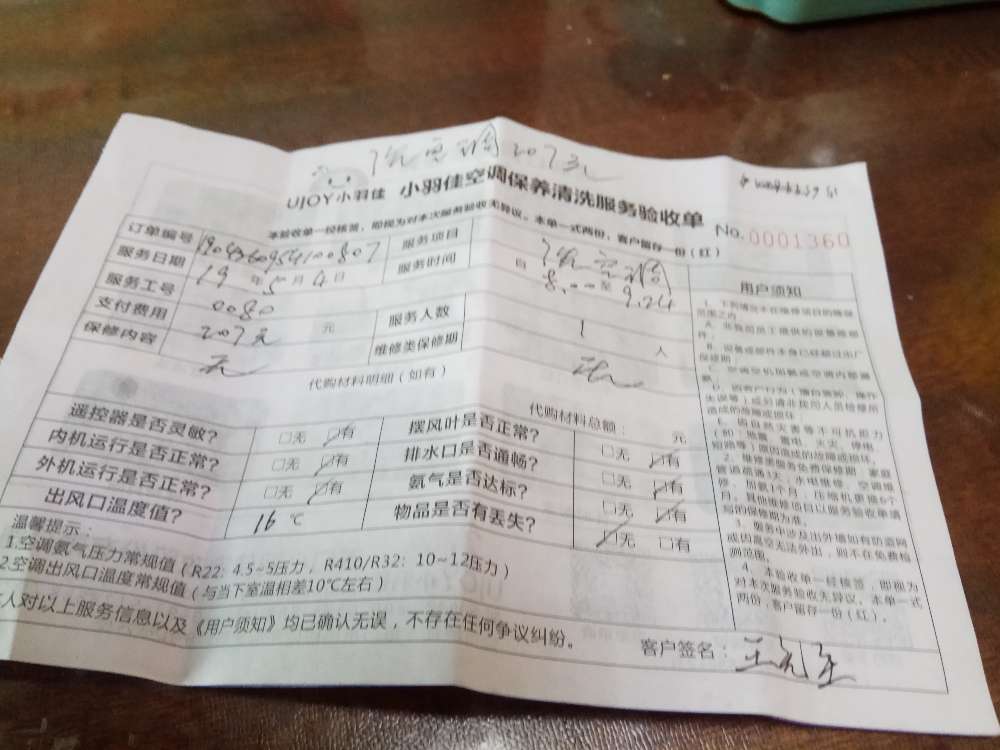 洗空调207元
UJOY小羽佳 小羽佳空调保养清洗服务验收单 No.0001360
本验收单一经核签，即视为对本次服务验收无异议。本单一式两份，客户留存一份（红）
订单编号 服务项目 洗空调
服务日期 19年5月4日 服务时间 自8:00至9:24
服务工号 0080
支付费用 207元 元 服务人数 1 人
保修内容 无 维修类保修期 无
代购材料明细（如有） 代购材料总额： 元
遥控器是否灵敏？ □无 ☑有 摆风叶是否正常？ □无 ☑有
内机运行是否正常？ □无 ☑有 排水口是否通畅？ □无 ☑有
外机运行是否正常？ □无 ☑有 氨气是否达标？ □无 ☑有
出风口温度值？ 16 ℃ 物品是否有丢失？ ☑无 □有
温馨提示：
1.空调氨气压力常规值（R22：4.5~5压力，R410/R32：10~12压力）
2.空调出风口温度常规值（与当下室温相差10℃左右）
人对以上服务信息以及《用户须知》均已确认无误，不存在任何争议纠纷。
客户签名：
用户须知
1、下列情况不在维修项目的维保
范围之内
A、非我司员工提供的
B、设备或部件本身已经超过出厂
保修期
C、空调空机加氨或空调内部漏
氨。
造成的故障或损坏
E、因自然灾害等不可抗拒力
（如：地震、雷电、火灾、停电、
短路等）原因造成的故障或损坏。
2、维修类服务免费保修期：家庭
管道疏通3天，水电维修、空调维
修、加氨1个月，压缩机更换6个
月。其他维修项目以服务验收单填
写的保修期为准。
3、服务中涉及出外墙如有防盗网
或因高空无法外出，则不在免费检
测范围。
4、本验收单一经核签，即视为
对本次服务验收无异议。本单一式
两份，客户留存一份（红）。